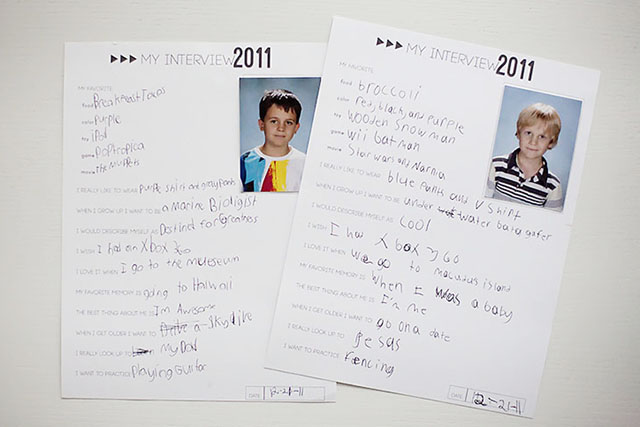 ▶▶▶ MY INTERVIEW 2011
MY FAVORITE
food Breakfast Tacos
color Purple
toy iPod
game Poptropica
movie the muppets
I REALLY LIKE TO WEAR purple shirt and gray pants
WHEN I GROW UP I WANT TO BE a Marine Bioligist
I WOULD DESCRIBE MYSELF AS Destind for Greatness
I WISH I had an Xbox 360
I LOVE IT WHEN I go to the museseum
MY FAVORITE MEMORY IS going to Haiwaii
THE BEST THING ABOUT ME IS I'm Awesome
WHEN I GET OLDER I WANT TO a Skylike
I REALLY LOOK UP TO My Dad
I WANT TO PRACTICE Playing Guitar
DATE 12-21-11
▶▶▶ MY INTERVIEW 2011
MY FAVORITE
food broccoli
color red, black, and purple
toy wooden snowman
game wii batman
movie Star wars and Narnia
I REALLY LIKE TO WEAR blue pants and V shirt
WHEN I GROW UP I WANT TO BE under water
I WOULD DESCRIBE MYSELF AS cool
I WISH I had X box 360
I LOVE IT WHEN we go to island
MY FAVORITE MEMORY IS when I was a baby
THE BEST THING ABOUT ME IS I'm me
WHEN I GET OLDER I WANT TO go on a date
I REALLY LOOK UP TO Jesas
I WANT TO PRACTICE Fencing
DATE 12-21-11